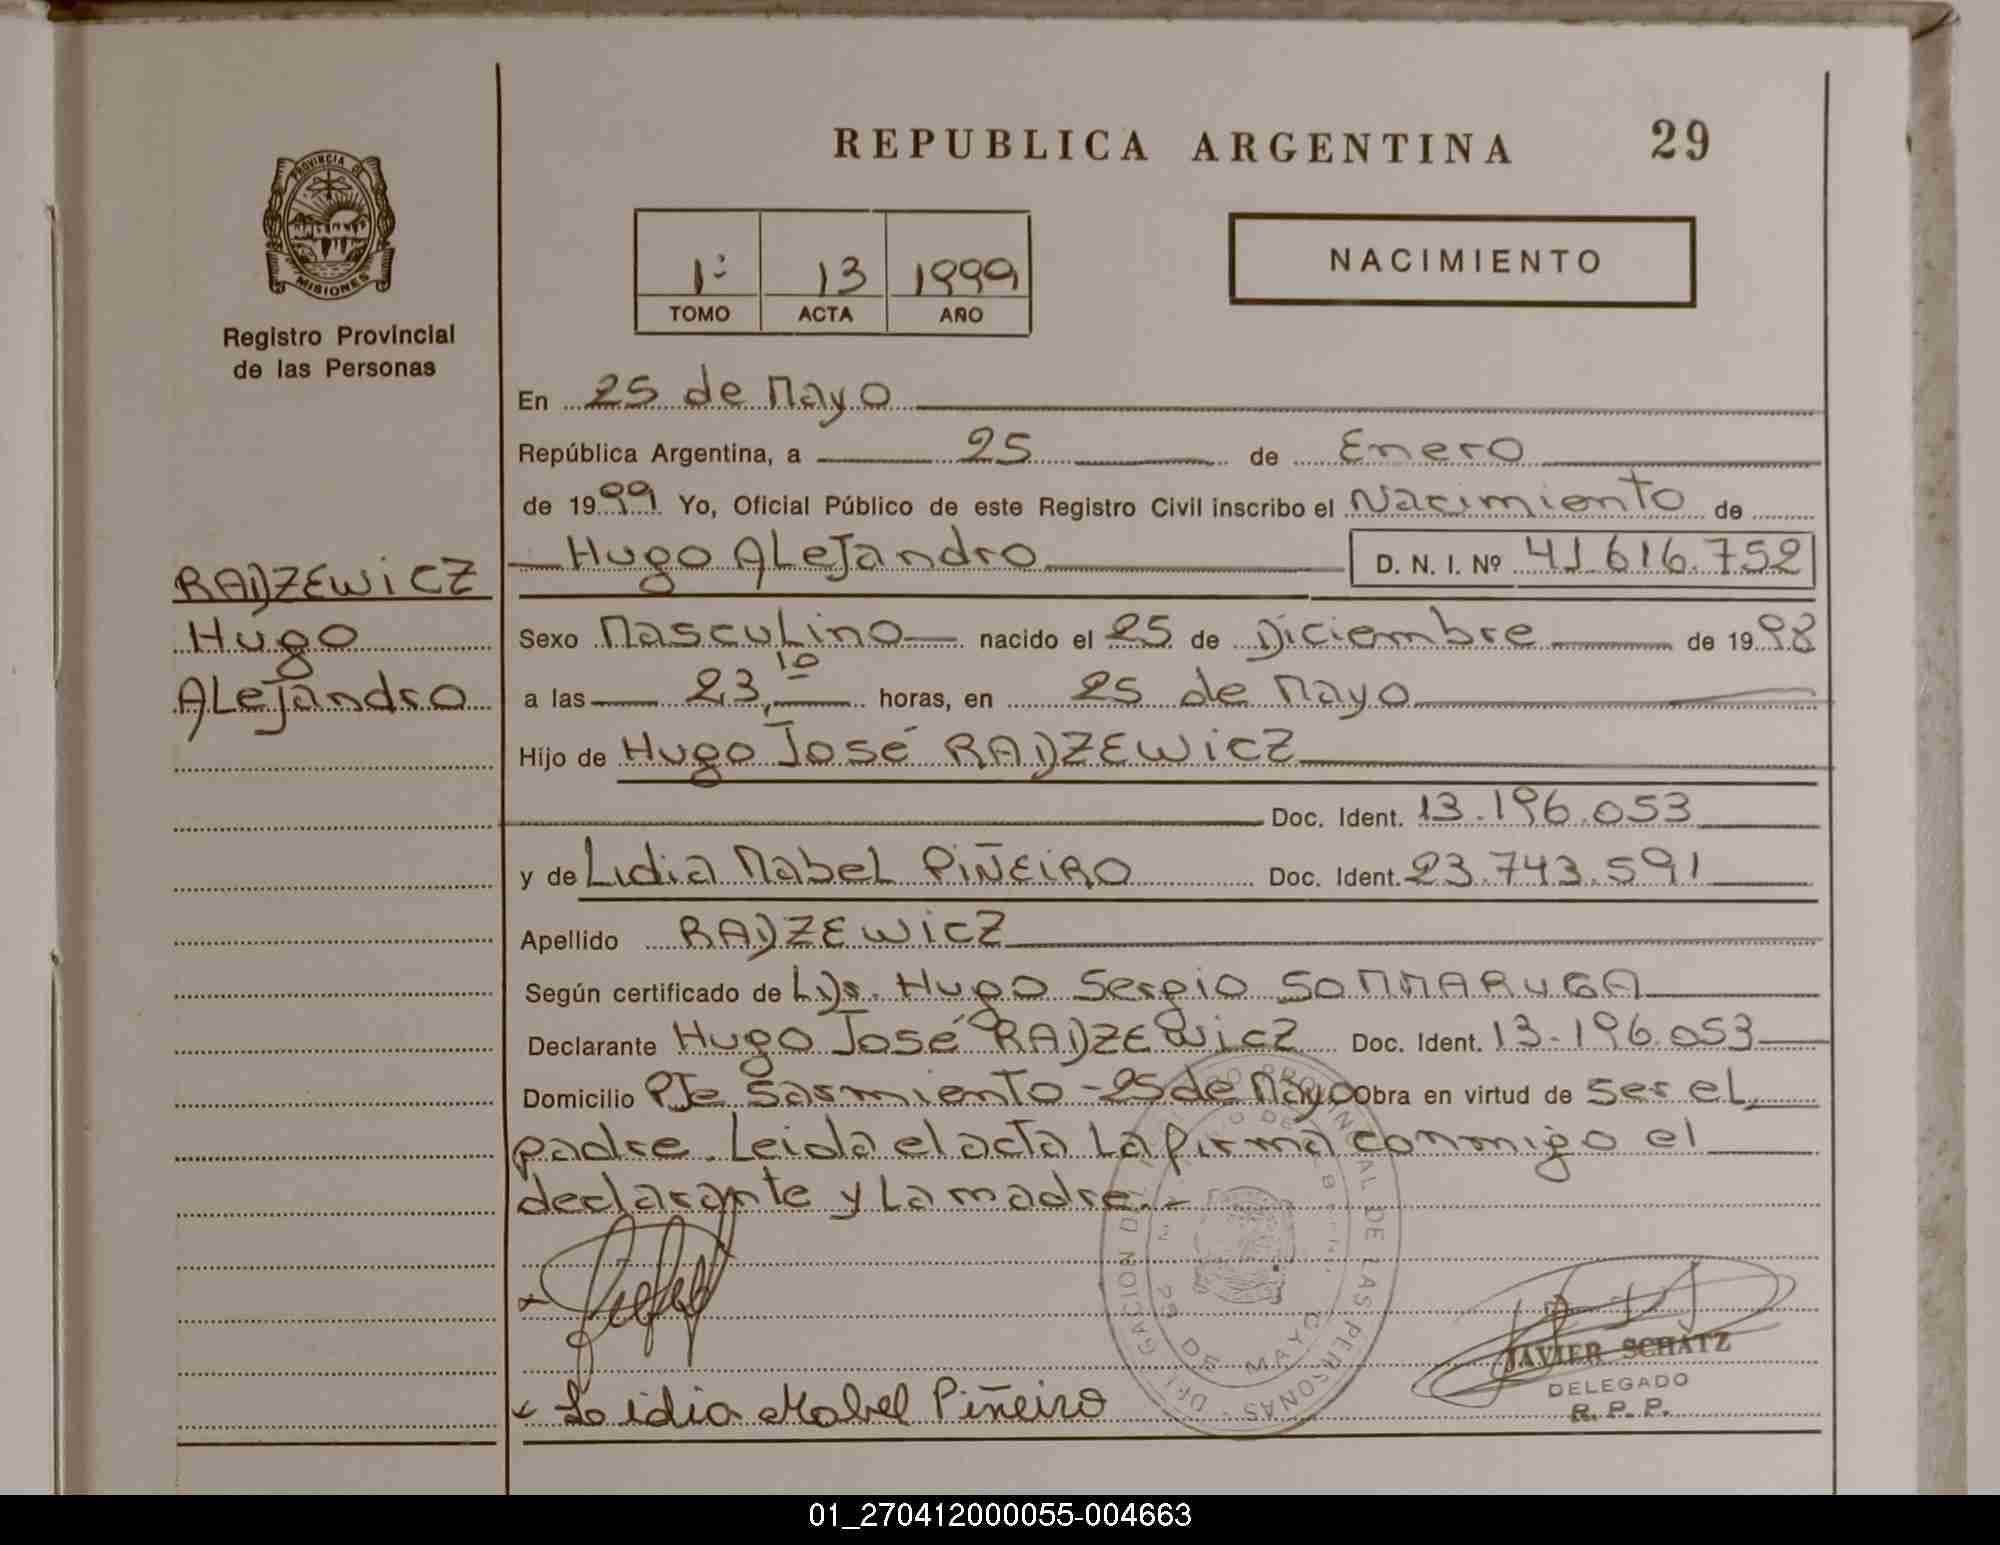 REPUBLICA ARGENTINA 29
PROVINCIA DE
MISIONES
Registro Provincial
de las Personas
1º 13 1999
TOMO ACTA AÑO
NACIMIENTO
En 25 de Mayo
República Argentina, a 25 de Enero
de 1999 Yo, Oficial Público de este Registro Civil inscribo el Nacimiento de
Hugo Alejandro D. N. I. Nº 41.616.752
RADZEWICZ
Hugo
Alejandro
Sexo Masculino nacido el 25 de Diciembre de 1998
a las 23,10 horas, en 25 de Mayo
Hijo de Hugo José RADZEWICZ
Doc. Ident. 13.196.053
y de Lidia Mabel PIÑEIRO Doc. Ident. 23.743.591
Apellido RADZEWICZ
Según certificado de Dr. Hugo Sergio SOMMARUGA
Declarante Hugo José RADZEWICZ Doc. Ident. 13.196.053
Domicilio Pje Sarmiento - 25 de Mayo Obra en virtud de ser el
padre. Leida el acta la firma conmigo el
declarante y la madre.-
Lidia Mabel Piñeiro
DE LAS PERSONAS
25 DE MAYO
JAVIER SCHATZ
DELEGADO
R. P. P.
01_270412000055-004663